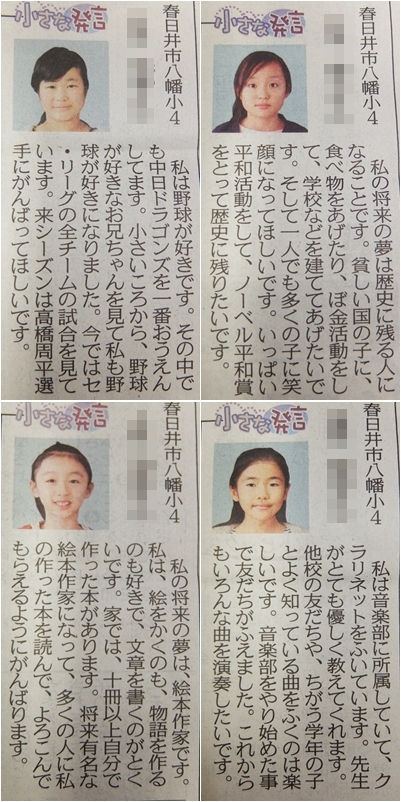 小さな発言
春日井市八幡小4
私は野球が好きです。その中で
も中日ドラゴンズを一番おうえん
してます。小さいころから、野球
が好きなお兄ちゃんを見て私も野
球が好きになりました。今ではセ
・リーグの全チームの試合を見て
います。来シーズンは高橋周平選
手にがんばってほしいです。
小さな発言
春日井市八幡小4
私の将来の夢は歴史に残る人に
なることです。貧しい国の子に、
食べ物をあげたり、ぼ金活動をし
て、学校などを建ててあげたいで
す。そして一人でも多くの子に笑
顔になってほしいです。いっぱい
平和活動をして、ノーベル平和賞
をとって歴史に残りたいです。
小さな発言
春日井市八幡小4
私の将来の夢は、絵本作家です。
私は、絵をかくのも、物語を作る
のも好きで、文章を書くのがとく
いです。家では、十冊以上自分で
作った本があります。将来有名な
絵本作家になって、多くの人に私
の作った本を読んで、よろこんで
もらえるようにがんばります。
小さな発言
春日井市八幡小4
私は音楽部に所属していて、ク
ラリネットをふいています。先生
がとても優しく教えてくれます。
他校の友だちや、ちがう学年の子
とよく知っている曲をふくのは楽
しいです。音楽部をやり始めた事
で友だちがふえました。これから
もいろんな曲を演奏したいです。